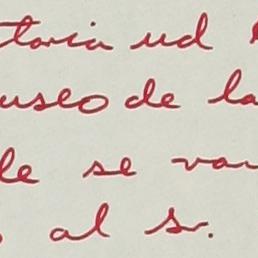 toria ud
useo de la
le se van
al Sr.